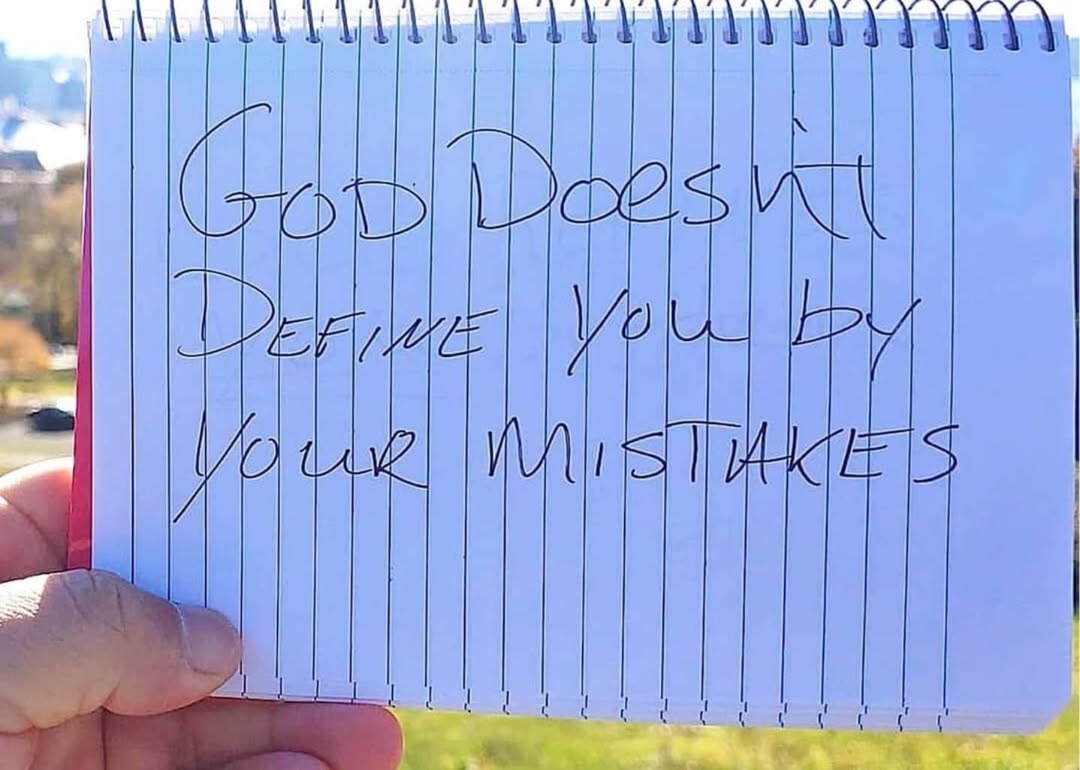 GOD Doesn't
DEFINE You by
YOUR MISTAKES